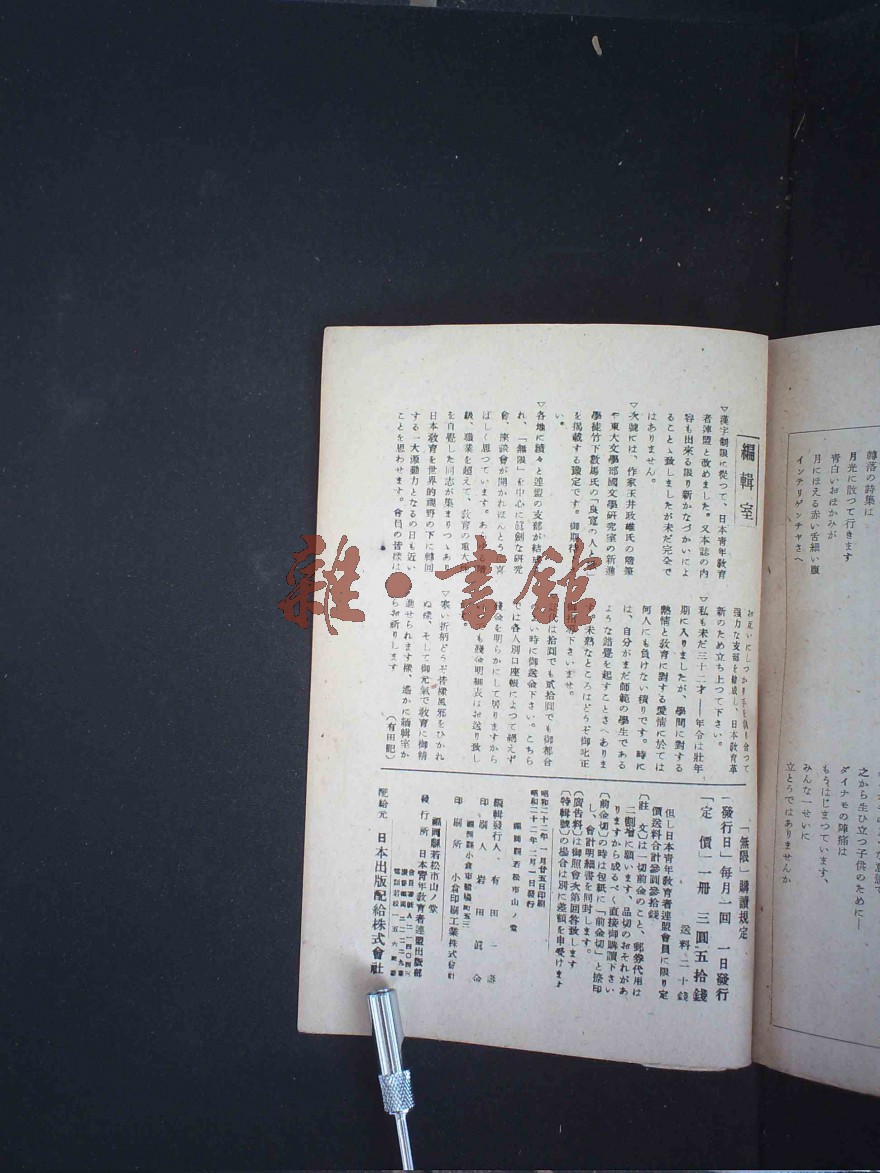 轉落の詩集は
月光に散つて行きます
青白いおほかみが
月にほえる赤い舌細い腹
インテリゲンチヤさへ
之から生ひ立つ子供のために―
ダイナモの陣痛は
もうはじまつています、
みんな一せいに
立とうではありませんか
編輯室
▽漢字制限に從つて、日本青年教育
者連盟と改めました。又本誌の内
容も出來る限り新かなづかいによ
ることゝ致しましたが未だ完全で
はありません。
▽次號には、作家玉井政雄氏の隨筆
や東大文學部國文學研究室の新進
學徒竹下數馬氏の「良寬の人と
を掲載する豫定です。御期待
い。
▽各地に續々と連盟の支部が結成
れ、「無限」を中心に眞劍な研究
會、座談會が開かれほんとうに喜
ばしく思つています。あ
級、職業を超えて、教育の重大
を自覺した同志が集まりつゝあり
日本教育を世界的視野の下に轉回
する一大原動力となるの日も近い
ことを思わせます。會員の皆樣は
お互いにしつかり手を執り合つて
強力な支部を結成し、日本教育革
新のため立ち上つて下さい。
▽私も未だ三十二才――年令は壯年
期に入りましたが、學問に對する
熱情と教育に對する愛情に於ては
何人にも負けない積りです。時に
は、自分がまだ師範の學生である
ような錯覺を起すことさへありま
未熟なところはどうぞ御叱正
下さいませ。
は拾圓でも貳拾圓でも御都合
い時に御送金下さい。こちら
では各人別口座帳によつて絕えず
殘金を明らかにして居りますから
も殘金明細表はお送り致し
▽寒い折柄どうぞ皆樣風邪をひかれ
ぬ樣、そして御元氣で教育に御精
進せられます樣、遙かに編輯室か
らお祈りします
(有田記)
「無限」購讀規定
「發行日」毎月一回 一日發行
「定 價」一册 三圓五拾錢
送料 二十錢
但し日本青年教育者連盟會員に限り定
價送料合計參圓參拾錢
〔註 文〕は一切前金のこと、郵券代用は
二割增に願います、品切のおそれがあ
りますから成るべく直接御購讀下さい
〔前金切〕の時は包紙に「前金切」と捺印
し、會計明細書を同封します。
〔廣告料〕は御照會次第回答致します
〔特輯號〕の場合は別に差額を申受けます
昭和二十二年一月廿五日印刷
昭和二十二年二月一日發行
福岡縣若松市山ノ堂
編輯發行人、有田一
印刷人 岩田
福岡縣小倉市
印刷所 小倉印刷工業株式會社
福岡縣若松市山ノ堂
發行所 日本青年教育者連盟出版部
配給元 日本出版配給株式會社
雜・書館